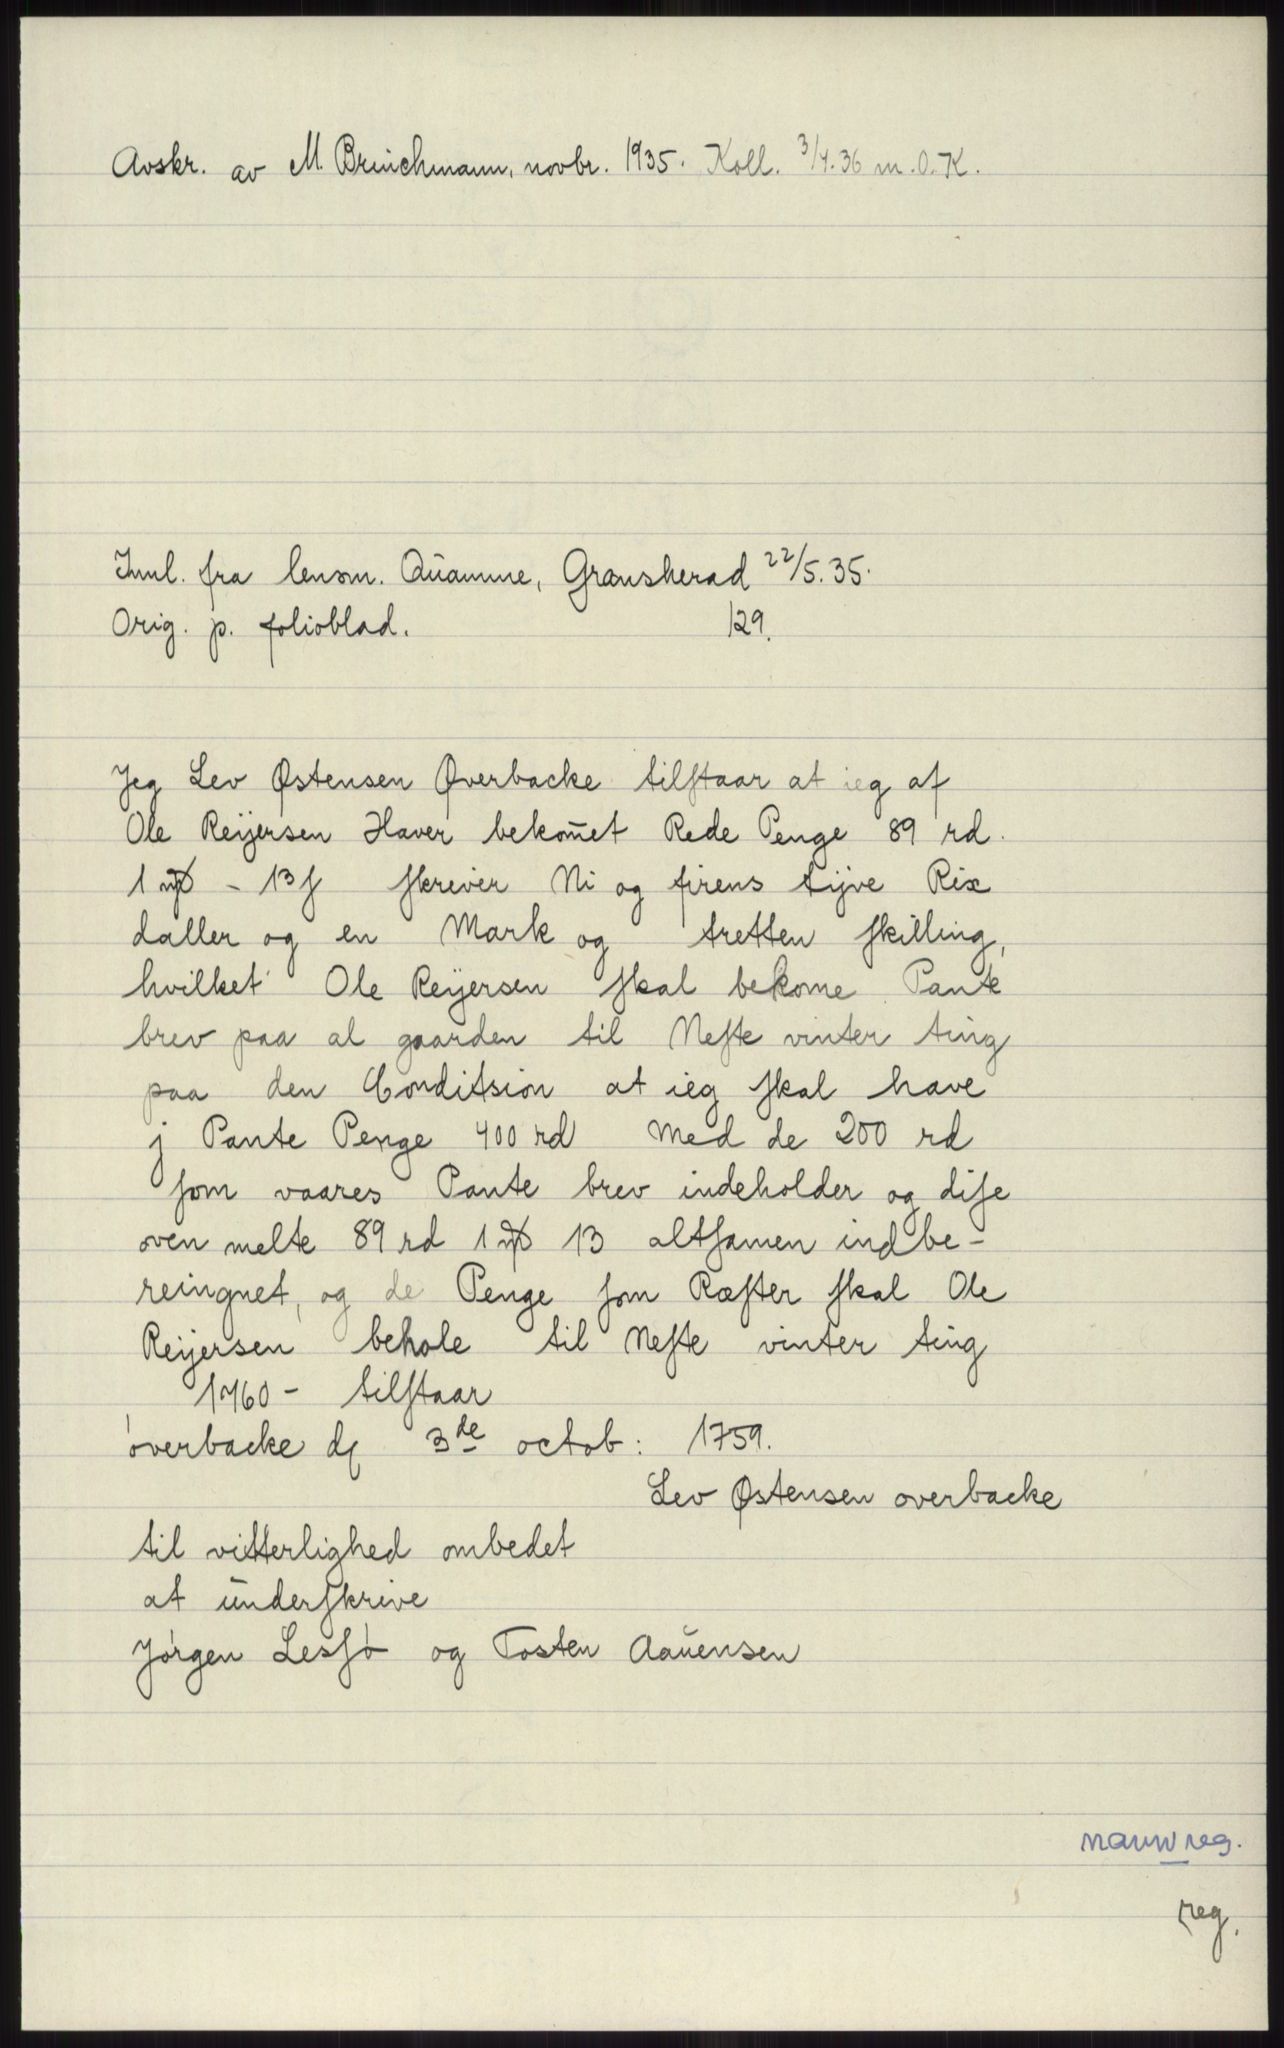 Avskr. av M. Brinchmann, novbr. 1935. Koll. 3/4.36 m. O.K.
Innl. fra lensm. Quamme, Gransherad 22/5.35.
Orig. p. folioblad. 129.
Jeg Lev Østensen Øverbacke tilstaar at ieg af
Ole Reijersen Haver bekom̄et Rede Penge 89 rd.
1 mꝟ - 13 ſ skriver Ni og firens tijve Rix
daller og en Mark og tretten skilling,
hvilket Ole Reijersen skal bekome Pante
brev paa al gaarden til Neste vinter ting
paa den Conditsion at ieg skal have
j Pante Penge 400 rd Med de 200 rd
som vaares Pante brev indeholder og dise
oven melte 89 rd 1 mꝟ 13 altsamen indbe-
reingnet, og de Penge som Ræster skal Ole
Reijersen behole til Neste vinter ting
1760 - tilstaar
øverbacke d 3de octob: 1759.
Lev Østensen overbacke
til vitterlighed ombedet
at underskrive
Jørgen Lessø og Tosten Aauensen
navnreg.
reg.